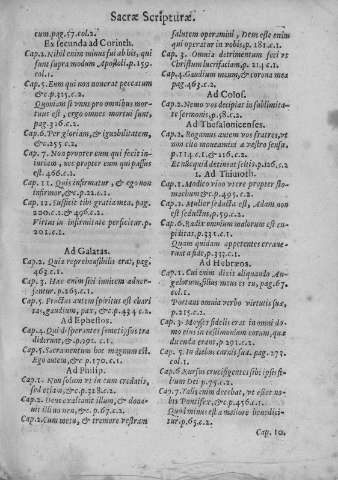 Sacræ Scripturæ.
tum. pag. 57. col. 2.
Ex secunda ad Corinth.
Cap. 2. Nihil enim minus fui ab his, qui
sunt supra modum Apostoli. p. 159.
col. 1.
Cap. 5. Eum qui non nouerat peccatum
&c. p. 325. c. 2.
Quoniam si vnus pro omnibus mor-
tuus est, ergo omnes mortui sunt,
pag. 326. c. 2.
Cap. 6. Per gloriam, & ignobilitatem,
&c. 255. c. 2.
Cap. 7. Non propter eum qui fecit in-
iuriam, nec propter eum qui passus
est. 466. c. 1.
Cap. 11. Quis infirmatur, & ego non
infirmor, &c. p. 22. c. 1.
Cap. 12. Sufficit tibi gratia mea, pag.
200. c. 2. & 496. c. 2.
Virtus in infirmitate perficitur. p.
201. c. 1.
Ad Galatas.
Cap. 2. Quia reprehensibilis erat, pag.
463. c. 1.
Cap. 3. Hæc enim sibi inuicem aduer-
santur. p. 265. c. 1.
Cap. 5. Fructus autem spiritus est chari-
tas, gaudium, pax, &c. p. 434 c. 2.
Ad Ephesios.
Cap. 4. Qui desperantes semetipsos tra
diderunt, &c. p. 191. c. 1.
Cap. 5. Sacramentum hoc magnum est.
Ego autem, &c. p. 170. c. 1.
Ad Philip.
Cap. 1. Non solum vt in eum credatis,
sed etiam, &c. p. 318. c. 2.
Cap. 2. Deus exaltauit illum, & dona-
uit illi nomen, &c. p. 67. c. 2.
Cap. 2. Cum metu, & tremore vestram
salutem operamini, Deus est enim
qui operatur in vobis, p. 181. c. 1.
Cap. 3. Omnia detrimentum feci vt
Christum lucrifaciam, p. 214 c. 1.
Cap. 4. Gaudium meum, & corona mea
pag. 463. c. 2.
Ad Colos.
Cap. 2. Nemo vos decipiat in sublimita-
te sermonis, p. 58. c. 2.
Ad Thesalonicenses.
Cap. 2. Rogamus autem vos fratres, vt
non cito moueamini a vestro sensu,
p. 114. c. 1, & 216. c. 2.
1. Ad Timoth.
Cap. 1. Modico vino vtere propter sto-
machum &c. p. 495. c. 2.
Cap. 2. Mulier seducta est, Adam non
est seductus, p. 59. c. 2.
Cap. 6. Radix omnium malorum est cu-
piditas, p. 331. c. 1.
Quam quidam appetentes erraue-
runt a fide, p. 333. c. 1.
Ad Hebræos.
Cap. 1. Cui enim dixit aliquando An-
gelorum, filius meus es tu, pag. 67.
col. 2.
Portans omnia verbo virtutis suæ,
p. 215. c. 2.
Cap. 3. Moyses fidelis erat in omni do-
mo eius in testimonium eorum, quæ
dicenda erant, p. 291. c. 2.
Cap. 5. In diebus carnis suæ. pag. 273.
col. 1.
Cap. 6 Rursus crucifigentes sibi ipsis fi-
lium Dei p. 75. c. 2.
Cap. 7. Talis enim decebat, vt esset no-
bis Pontifex, &c. p. 456. c. 1.
Quod minus est a maiore benedici-
tur. p. 65. c. 2.
Cap. 10.